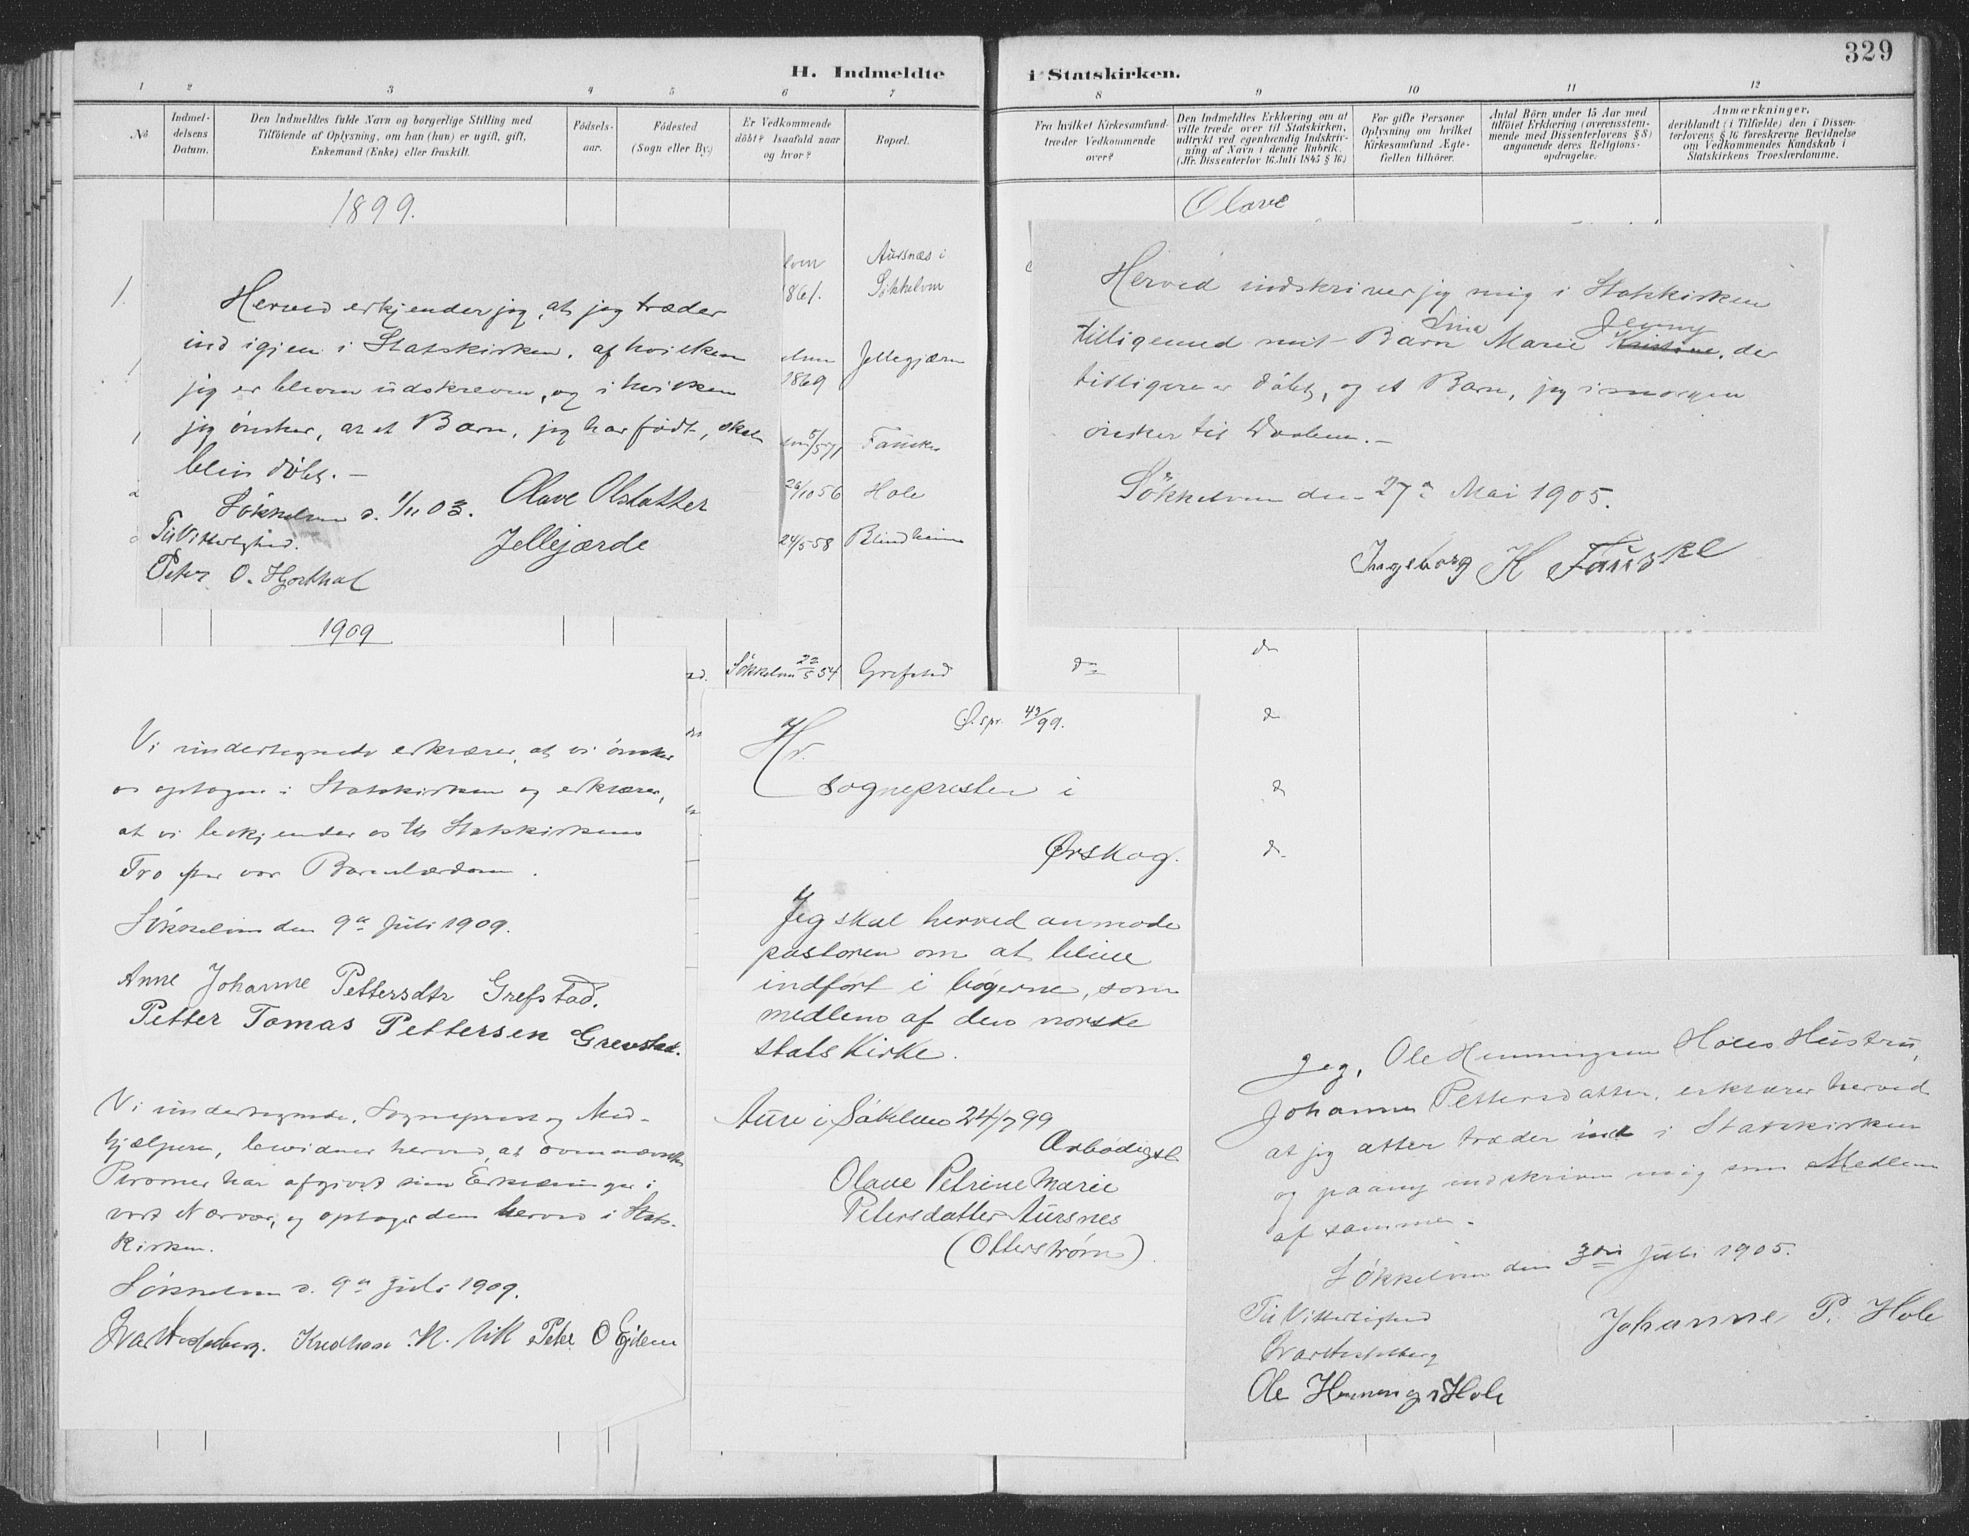 329
H. Indmeldte i Statskirken.
1 2 3 4 5 6 7 8 9 10 11 12
No
Indmel-
delsens
Datum.
Den Indmeldtes fulde Navn og borgerlige Stilling med
Tilföiende af Oplysning, om han (hun) er ugift, gift,
Enkemand (Enke) eller fraskilt.
Födsels-
aar.
Födested
(Sogn eller By.)
Er Vedkommende
döbt? Isaafald naar
og hvor?
Bopæl.
Fra hvilket Kirkesamfund
træder Vedkommende
over?
Den Indmeldtes Erklæring om at
ville træde over til Statskirken,
udtrykt ved egenhændig Indskriv-
ning af Navn i denne Rubrik.
(Jfr. Dissenterlov 16 Juli 1845 § 16)
For gifte Personer
Oplysning om hvilket
Kirkesamfund Ægte-
fællen tilhörer.
Antal Börn under 15 Aar med
tilföiet Erklæring (overensstem-
mende med Dissenterlovens § 8)
angaaende deres Religions-
opdragelse.
Anmærkninger,
deriblandt (i Tilfælde) den i Dissen-
terlovens § 16 foreskrevne Bevidnelse
om Vedkommendes Kundskab i
Statskirkens Troeslærdomme.
1899.
Olave
1.
1861.
Aursnæs i
Søkkelven
1869
Jellegjærde
5/5 77
Fauske
26/10 56
Hole
24/5 58
Blindheim
Herved erkjender jeg, at jeg træder
ind igjen i Statskirken, af hvilken
jeg er bleven udskreven, og i hvilken
jeg ønsker, at et Barn, jeg har født, skal
blive døbt. -
Søkkelven d. 1/11 03.
Olave Olsdatter
Jellejærde
Til Vitterlighed.
Peter O. Hjorthol
Herved indskriver jeg mig i Statskirken
tilligemed mit Barn Lina Marie Kristine Jenny, der
tidligere er døbt, og et Barn, jeg imorgen
ønsker til Daaben. -
Søkkelven den 27de Mai 1905.
Ingeborg K Fauske
1909
Søkkelven 22/5 54
Grefstad
do
do
do
do
do
Vi undertegnede erklærer, at vi ønsker
os optagne i Statskirken og erklærer,
at vi bekjender os til Statskirkens
Tro efter vor Barnelærdom.
Søkkelven den 9de Juli 1909.
Anne Johanne Pettersdtr Grefstad.
Petter Tomas Pettersen Grevstad.
Vi undertegnede, Sogneprest og Med-
hjælpere, bevidner herved, at ovennævnte
Personer har afgivet sin Erklæring i
vort Nærvær, og optages de herved i Stats-
kirken.
Søkkelven d. 9de Juli 1909.
Knudhans K. Vik Peter O Ejdem
Ø.spr. 43/99.
Hr.
Sognepresten i
Ørskog.
Jeg skal herved anmode
pastoren om at blive
indført i bøgerne, som
medlem af den norske
statskirke.
Aure i Søkelven 24/7 99
Ærbødigst
Olave Petrine Marie
Petersdatter Aursnes
(Otterstrøm)
Jeg, Ole Henningsen Holes Hustru,
Johanne Pettersdatter, erklærer herved
at jeg atter træder ind i Statskirken
og paany indskriver mig som Medlem
af samme.
Søkkelven den 3die Juli 1905.
Til Vitterlighed
Johanne P. Hole
Ole Hennings Hole